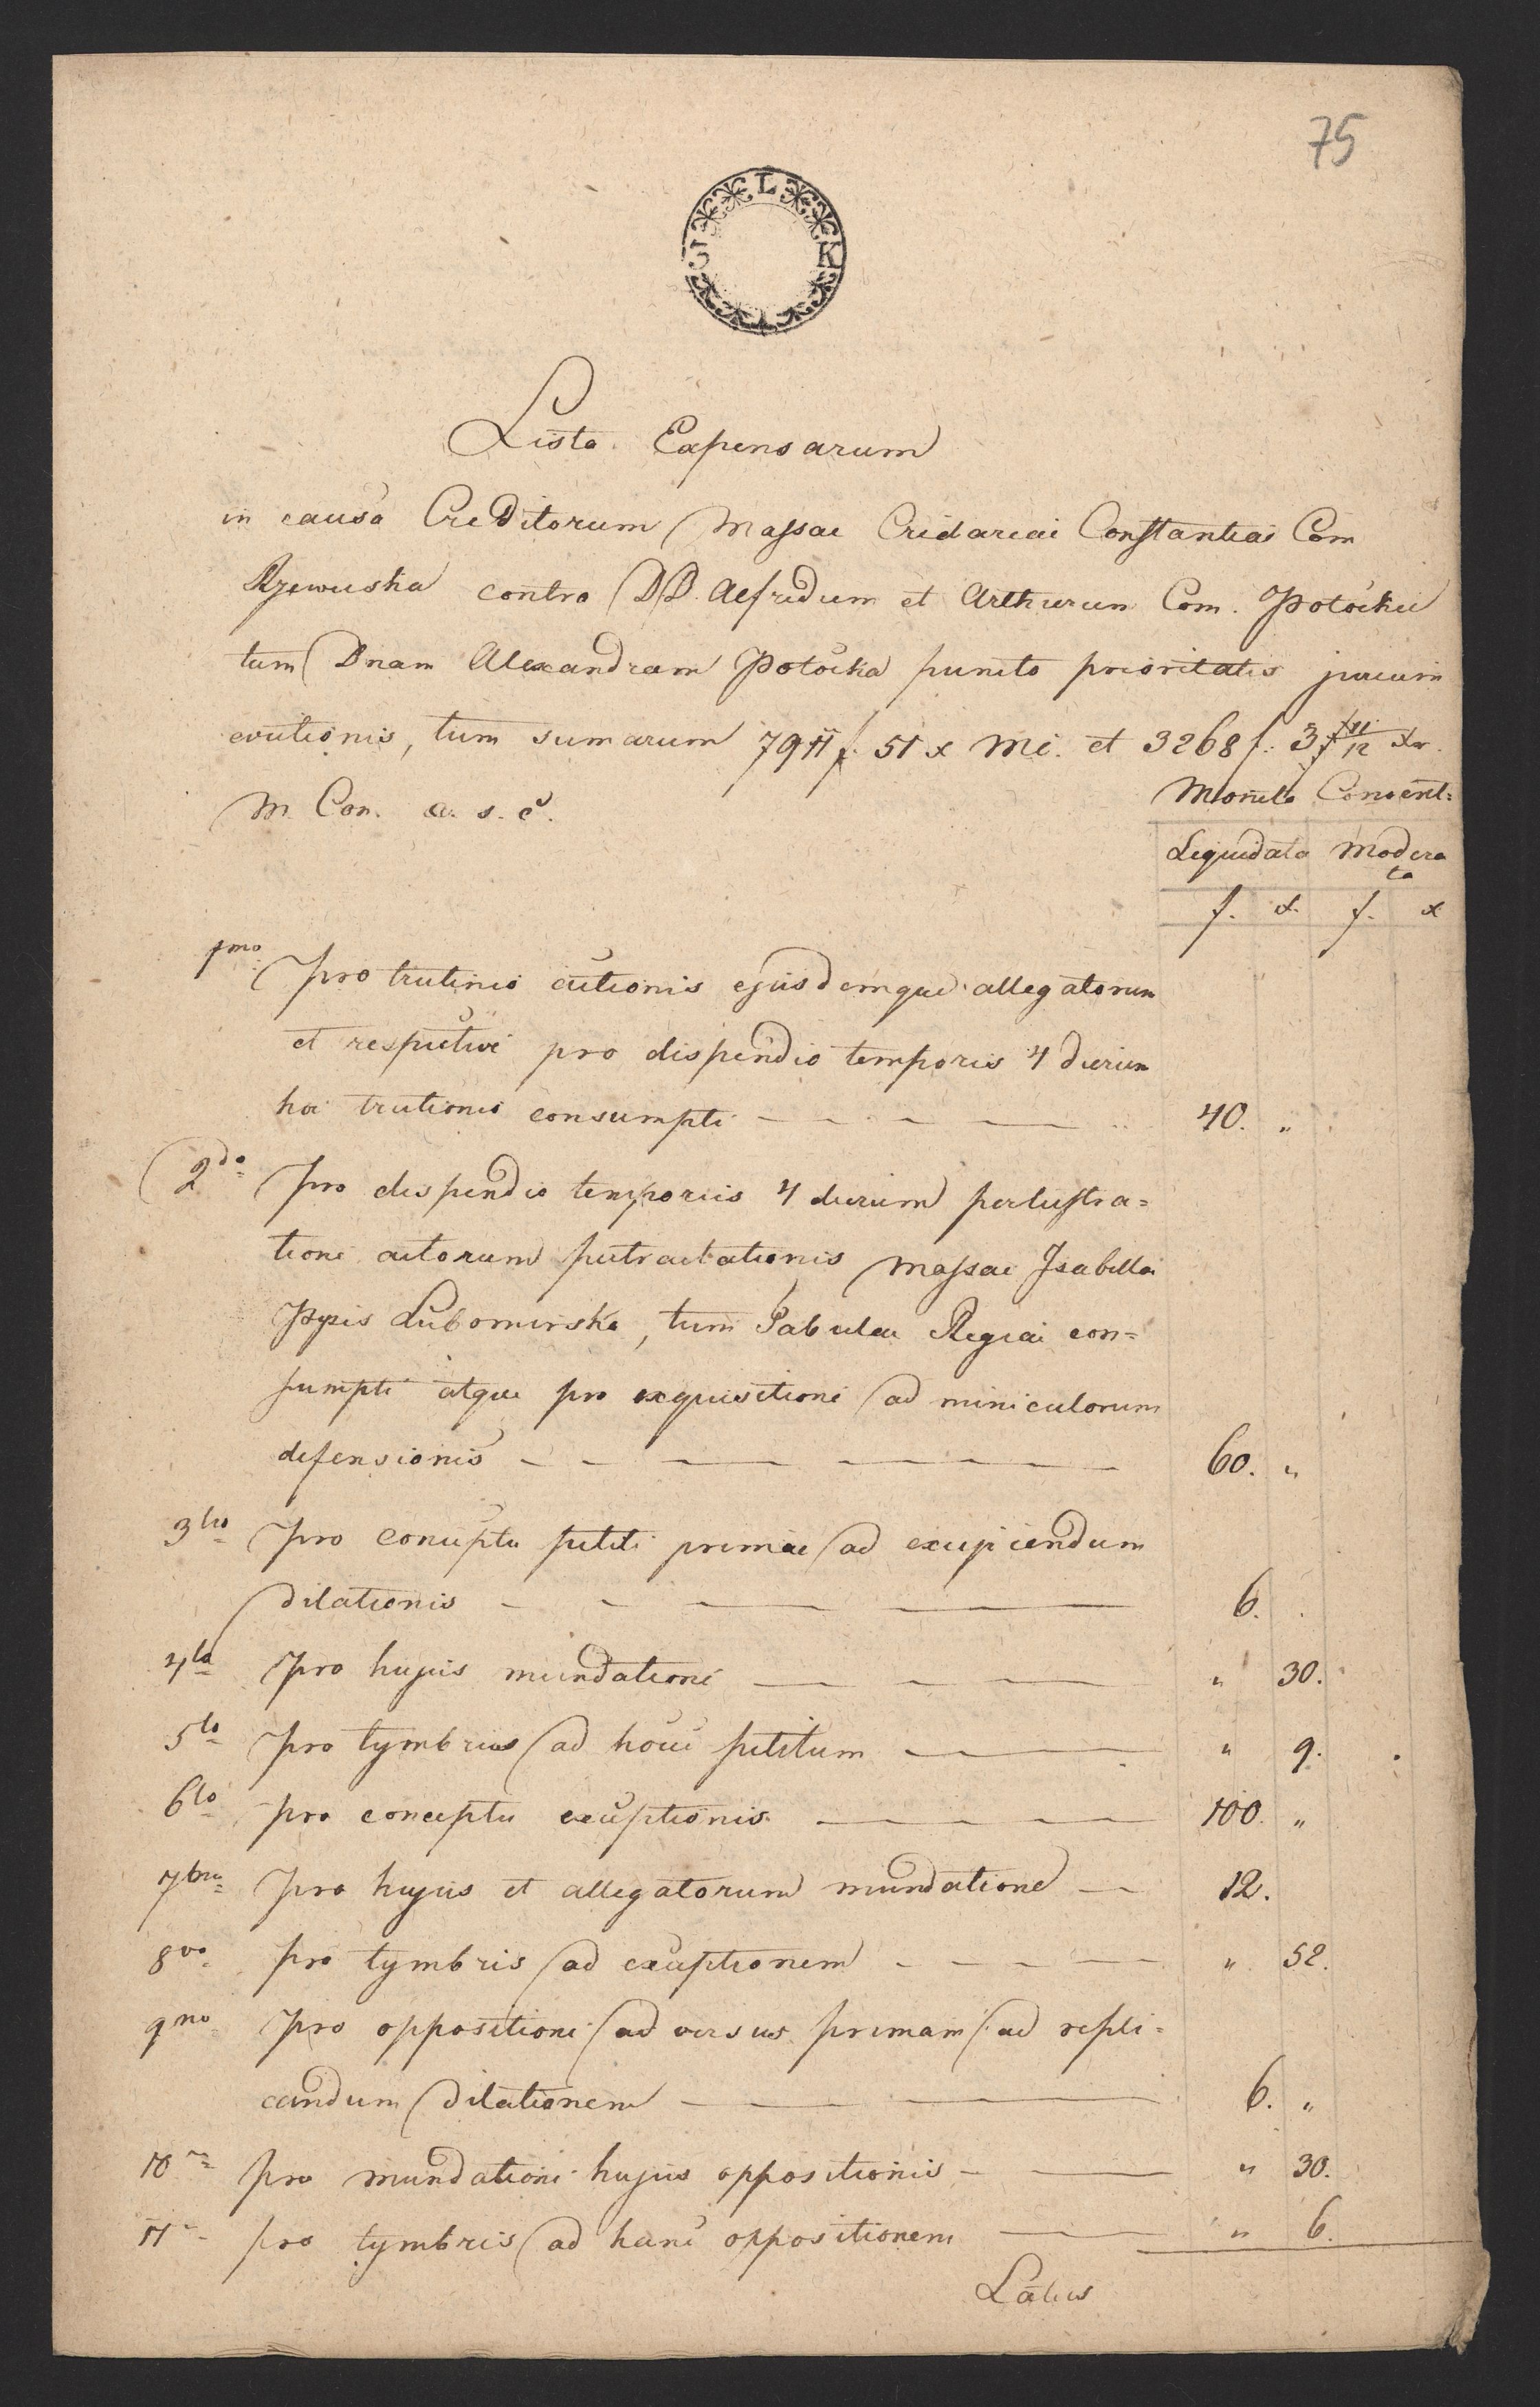 75
L
3 K
Lista Expensarum
in causa Creditorum Massae Cridariae Constantiae Com
Rzewuska contra DD. Alfredum et Arthurum Com. Potockie
tum Dnam Alexandram Potocka puncto prioritatis jurium
evictionis, tum sumarum 7911 f. 51 x Mc. et 3268 f. 3 11/12 xr.
M. Con. a. s. c.
Moneta Convent:
Liquidata Modera
ta
f. x. f. x
1mo Pro trutinio actionis ejusdemque allegatorum
et respective pro dispendio temporis 4 dierum
hoc trutionio consumpti 40. "
2do Pro dispendio temporis 4 dierum perlustra=
tione actorum pertractationis massae Isabellae
Ppis Lubomirska, tum Tabulae Regiae con=
sumpti atque pro exquisitione adminiculorum
defensionis 60. "
3tio Pro conceptu petiti primae ad excipiendum
dilationis 6.
4to Pro hujus mundatione " 30.
5to Pro tymbris ad hocce petitum " 9.
6to pro conceptu exceptionis 100. "
7mo Pro hujus et allegatorum mundatione 12.
8vo pro tymbris ad exceptionem " 52.
9no Pro oppositione adversus primam ad repli=
candum dilationem 6. "
10mo pro mundatione hujus oppositionis " 30.
11o pro tymbris ad hanc oppositionem " 6.
Latus